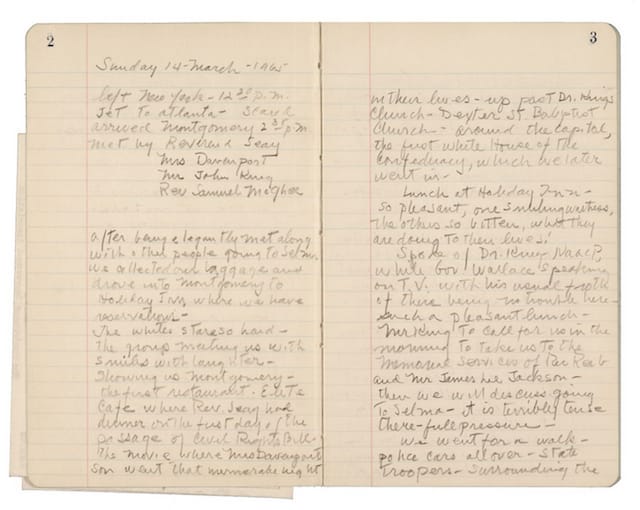 2
Sunday 14-March-1965
left New York - 12 30 p.m.
Jet to Atlanta -
arrived Montgomery 2 35 p m
met by Reverend Seay
Mrs Davenport
Mr John King
Rev Samuel McGhee
after being elegantly met along
with other people going to Selma.
we collected our luggage and
drove into Montgomery to
Holiday Inn, where we have
reservations -
The whites stare so hard -
the group meeting us with
smiles with laughter -
Showing us Montgomery -
the first restaurant. Elite
Cafe where Rev. Seay had
dinner on the first day of the
passage of Civil Rights Bill -
The movie where Mrs Davenport
son went that memorable night
3
in their lives - up past Dr. King's
Church - Dexter St. Babptist
Church - around the Capital,
the first White House of the
Confederacy, which we later
went in -
Lunch at Holiday Inn -
so pleasant, one smiling waitress,
the others so bitten, what they
are doing to their lives!
Spoke of Dr. King NAACP,
while Gov Wallace speaking
on T.V. with his usual froth
of there being no trouble here -
such a pleasant lunch -
Mr King to call for us in the
morning to take us to the
Memorial Services of Rev Reeb
and Mr James Lee Jackson -
then we will discuss going
to Selma - it is terribly tense
there - full pressure -
we went for a walk -
police cars all over - State
Troopers - surrounding the